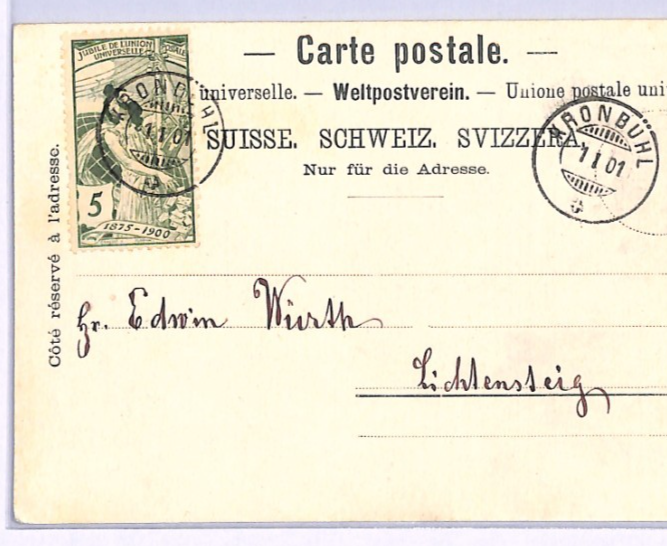 JUBILÉ DE L'UNION POSTALE
UNIVERSELLE
5
1875-1900
KRONBÜHL
1.I.01
— Carte postale. —
universelle. — Weltpostverein. — Unione postale uni
SUISSE. SCHWEIZ. SVIZZERA
Nur für die Adresse.
KRONBÜHL
1 I 01
Côté réservé à l'adresse.
Hr. Edwin Würth
Lichtensteig